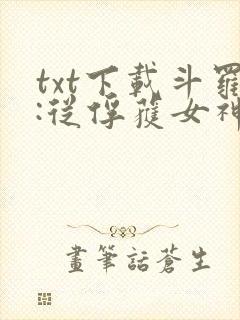 txt下載斗羅
:從俘獲女神
畫筆話蒼生